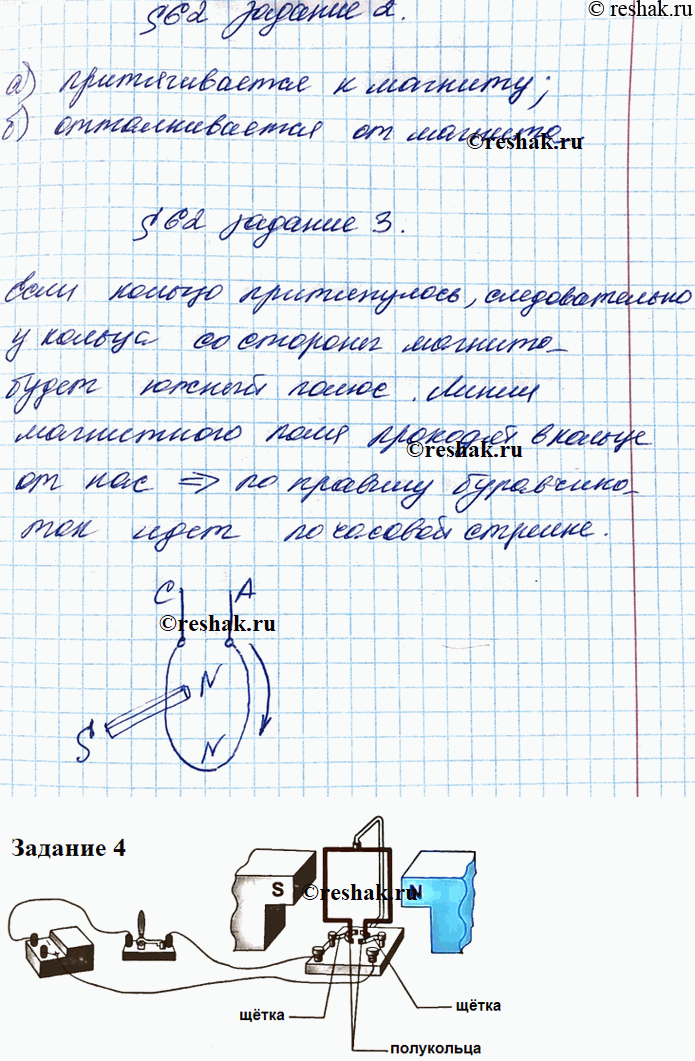 © reshak.ru
§62 задание 2.
а) притягивается к магниту;
б) отталкивается от магнита.
©reshak.ru
§62 задание 3.
Если кольцо притянулось, следовательно
у кольца со стороны магнита
будет южный полюс. Линии
магнитного поля проходят в кольце
©reshak.ru
от нас => по правилу буравчика
ток идет по часовой стрелке.
C A
©reshak.ru
N
S
N
Задание 4
S ©reshak.ru N
щётка
щётка
полукольца